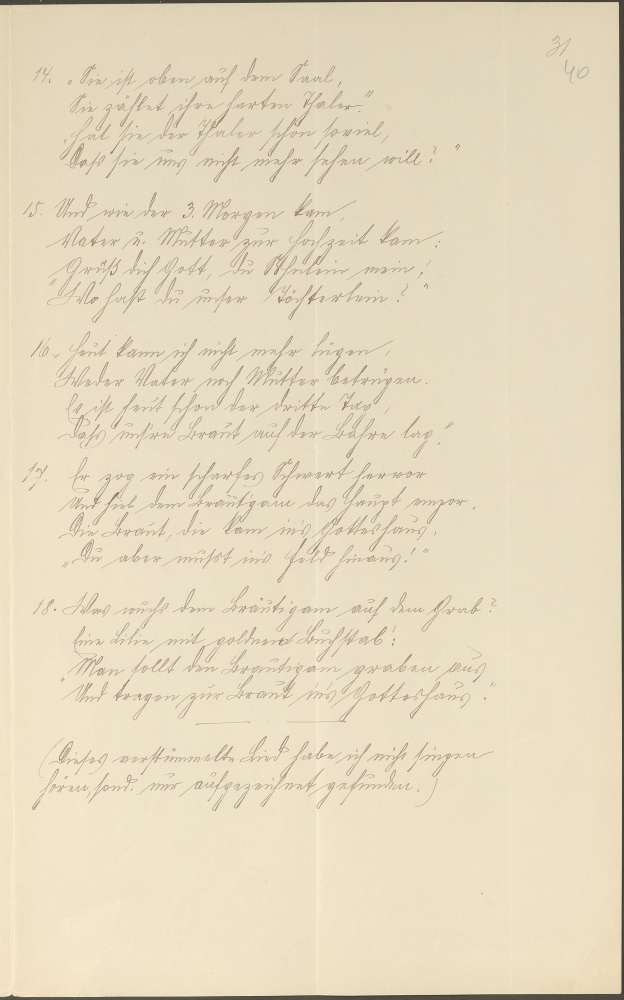 31
40
14. „Sie ist oben auf dem Saal,
Sie zählet ihre harten Thaler.“
„Hat sie der Thaler schon soviel,
Daß sie uns nicht mehr sehen will?“
15. Und wie der 3. Morgen kam,
Vater u. Mutter zur Hochzeit kam:
„Grüß dich Gott, du mein!
Wo hast du unser Töchterlein?“
16. „Heut kann ich nicht mehr lügen,
Weder Vater noch Mutter betrügen.
Es ist heut schon der dritte Tag,
Dass unsre Braut auf der Bahre lag.“
17. Er zog ein scharfes Schwert hervor
Und hiel dem Bräutgam das Haupt empor.
Die Braut, die kam ins Gotteshaus,
„Du aber mußst ins Feld hinaus!“
18. Was wuchs dem Bräutigam auf dem Grab?
Eine Lilie mit goldnen Buchstab':
„Man sollt den Bräutigam graben aus
Und tragen zur Braut in's Gotteshaus.“
(Dieses verstümmelte Lied habe ich nicht singen
hören, sond. nur aufgezeichnet gefunden.)